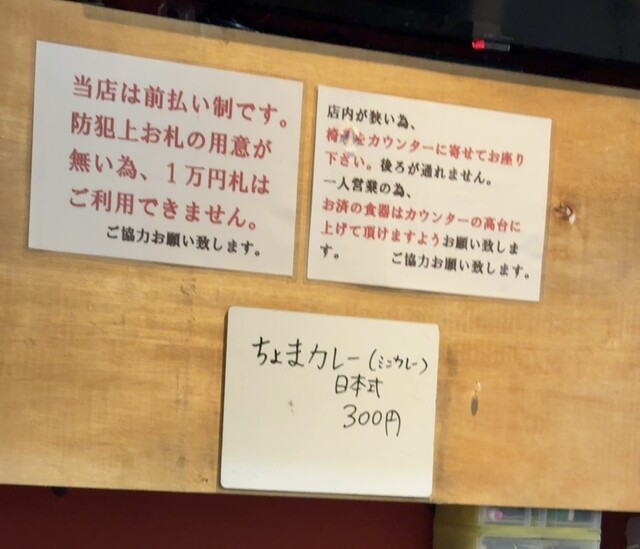 当店は前払い制です。
防犯上お札の用意が
無い為、１万円札は
ご利用できません。
ご協力お願い致します。
店内が狭い為、
椅子をカウンターに寄せてお座り
下さい。後ろが通れません。
一人営業の為、
お済の食器はカウンターの高台に
上げて頂けますようお願い致しま
す。　　　ご協力お願い致します。
ちょまカレー(ミニカレー)
日本式
300円